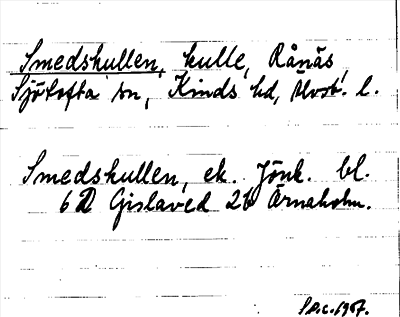 Smedskullen, kulle, Rånäs
Sjötofta sn, Kinds hd, Älvsb. l.
Smedskullen, ek. Jönk. bl.
6D Gislaved 2b Årnaholm.
1967.